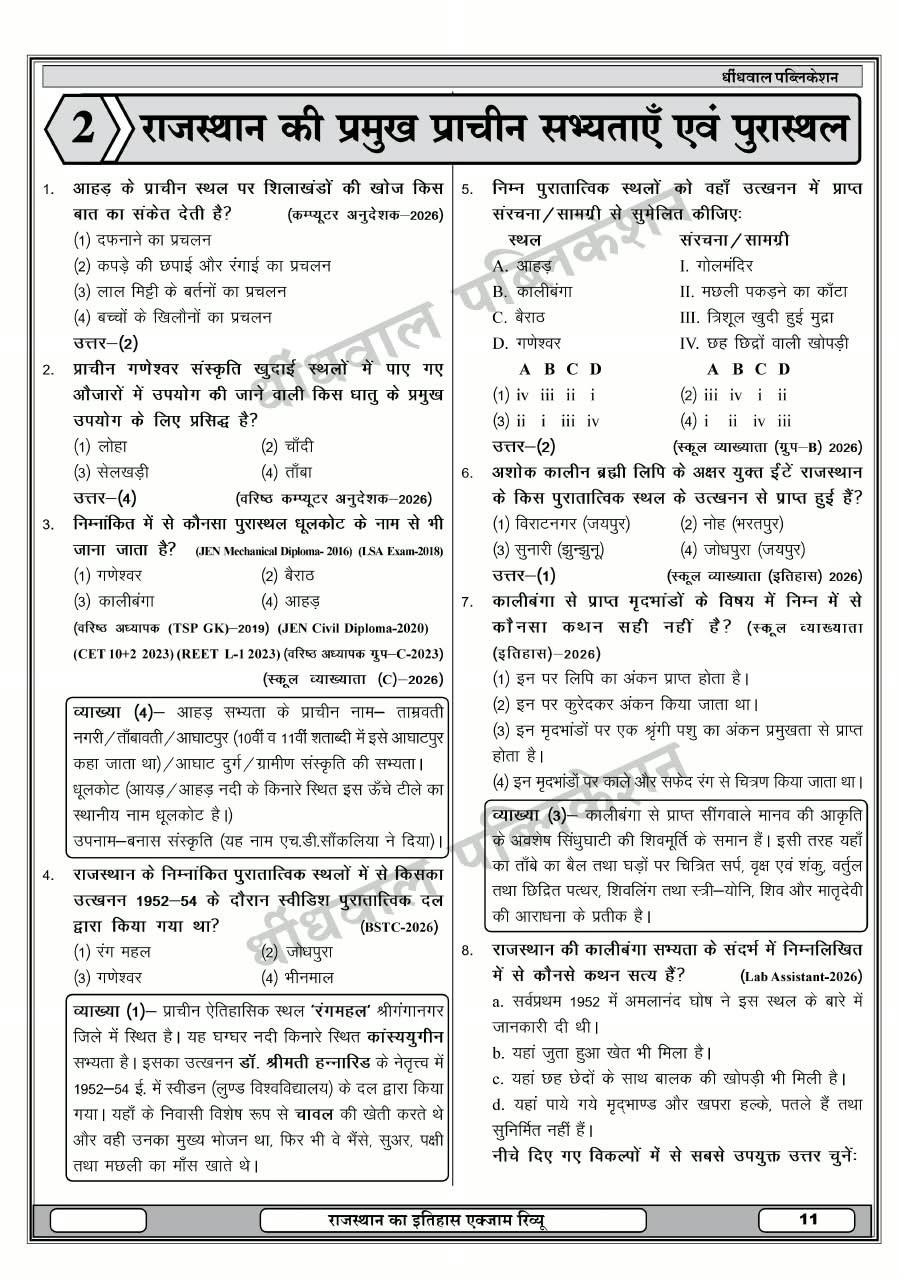 धींधवाल पब्लिकेशन
2 राजस्थान की प्रमुख प्राचीन सभ्यताएँ एवं पुरास्थल
1. आहड़ के प्राचीन स्थल पर शिलाखंडों की खोज किस
बात का संकेत देती है? (कम्प्यूटर अनुदेशक–2026)
(1) दफनाने का प्रचलन
(2) कपड़े की छपाई और रंगाई का प्रचलन
(3) लाल मिट्टी के बर्तनों का प्रचलन
(4) बच्चों के खिलौनों का प्रचलन
उत्तर–(2)
2. प्राचीन गणेश्वर संस्कृति खुदाई स्थलों में पाए गए
औजारों में उपयोग की जाने वाली किस धातु के प्रमुख
उपयोग के लिए प्रसिद्ध है?
(1) लोहा (2) चाँदी
(3) सेलखड़ी (4) ताँबा
उत्तर–(4) (वरिष्ठ कम्प्यूटर अनुदेशक–2026)
3. निम्नांकित में से कौनसा पुरास्थल धूलकोट के नाम से भी
जाना जाता है? (JEN Mechanical Diploma- 2016) (LSA Exam-2018)
(1) गणेश्वर (2) बैराठ
(3) कालीबंगा (4) आहड़
(वरिष्ठ अध्यापक (TSP GK)–2019) (JEN Civil Diploma-2020)
(CET 10+2 2023) (REET L-1 2023) (वरिष्ठ अध्यापक ग्रुप–C-2023)
(स्कूल व्याख्याता (C)–2026)
व्याख्या (4)– आहड़ सभ्यता के प्राचीन नाम– ताम्रवती
नगरी/ताँबावती/आघाटपुर (10वीं व 11वीं शताब्दी में इसे आघाटपुर
कहा जाता था)/आघाट दुर्ग/ग्रामीण संस्कृति की सभ्यता।
धूलकोट (आयड़/आहड़ नदी के किनारे स्थित इस ऊँचे टीले का
स्थानीय नाम धूलकोट है।)
उपनाम–बनास संस्कृति (यह नाम एच.डी.साँकलिया ने दिया)।
4. राजस्थान के निम्नांकित पुरातात्विक स्थलों में से किसका
उत्खनन 1952–54 के दौरान स्वीडिश पुरातात्विक दल
द्वारा किया गया था? (BSTC-2026)
(1) रंग महल (2) जोधपुरा
(3) गणेश्वर (4) भीनमाल
व्याख्या (1)– प्राचीन ऐतिहासिक स्थल 'रंगमहल' श्रीगंगानगर
जिले में स्थित है। यह घग्घर नदी किनारे स्थित कांस्ययुगीन
सभ्यता है। इसका उत्खनन डॉ. श्रीमती हन्नारिड के नेतृत्त्व में
1952–54 ई. में स्वीडन (लुण्ड विश्वविद्यालय) के दल द्वारा किया
गया। यहाँ के निवासी विशेष रूप से चावल की खेती करते थे
और वही उनका मुख्य भोजन था, फिर भी वे भैंसे, सुअर, पक्षी
तथा मछली का माँस खाते थे।
5. निम्न पुरातात्विक स्थलों को वहाँ उत्खनन में प्राप्त
संरचना/सामग्री से सुमेलित कीजिएः
स्थल संरचना/सामग्री
A. आहड़ I. गोलमंदिर
B. कालीबंगा II. मछली पकड़ने का काँटा
C. बैराठ III. त्रिशूल खुदी हुई मुद्रा
D. गणेश्वर IV. छह छिद्रों वाली खोपड़ी
A B C D A B C D
(1) iv iii ii i (2) iii iv i ii
(3) ii i iii iv (4) i ii iv iii
उत्तर–(2) (स्कूल व्याख्याता (ग्रुप–B) 2026)
6. अशोक कालीन ब्रह्मी लिपि के अक्षर युक्त ईंटें राजस्थान
के किस पुरातात्विक स्थल के उत्खनन से प्राप्त हुई हैं?
(1) विराटनगर (जयपुर) (2) नोह (भरतपुर)
(3) सुनारी (झुन्झुनू) (4) जोधपुरा (जयपुर)
उत्तर–(1) (स्कूल व्याख्याता (इतिहास) 2026)
7. कालीबंगा से प्राप्त मृदभांडों के विषय में निम्न में से
कौनसा कथन सही नहीं है? (स्कूल व्याख्याता
(इतिहास)–2026)
(1) इन पर लिपि का अंकन प्राप्त होता है।
(2) इन पर कुरेदकर अंकन किया जाता था।
(3) इन मृदभांडों पर एक श्रृंगी पशु का अंकन प्रमुखता से प्राप्त
होता है।
(4) इन मृदभांडों पर काले और सफेद रंग से चित्रण किया जाता था।
व्याख्या (3)– कालीबंगा से प्राप्त सींगवाले मानव की आकृति
के अवशेष सिंधुघाटी की शिवमूर्ति के समान हैं। इसी तरह यहाँ
का ताँबे का बैल तथा घड़ों पर चित्रित सर्प, वृक्ष एवं शंकु, वर्तुल
तथा छिद्रित पत्थर, शिवलिंग तथा स्त्री–योनि, शिव और मातृदेवी
की आराधना के प्रतीक है।
8. राजस्थान की कालीबंगा सभ्यता के संदर्भ में निम्नलिखित
में से कौनसे कथन सत्य हैं? (Lab Assistant-2026)
a. सर्वप्रथम 1952 में अमलानंद घोष ने इस स्थल के बारे में
जानकारी दी थी।
b. यहां जुता हुआ खेत भी मिला है।
c. यहां छह छेदों के साथ बालक की खोपड़ी भी मिली है।
d. यहां पाये गये मृद्भाण्ड और खपरा हल्के, पतले हैं तथा
सुनिर्मित नहीं हैं।
नीचे दिए गए विकल्पों में से सबसे उपयुक्त उत्तर चुनेंः
धींधवाल पब्लिकेशन
धींधवाल पब्लिकेशन
राजस्थान का इतिहास एक्जाम रिव्यू
11